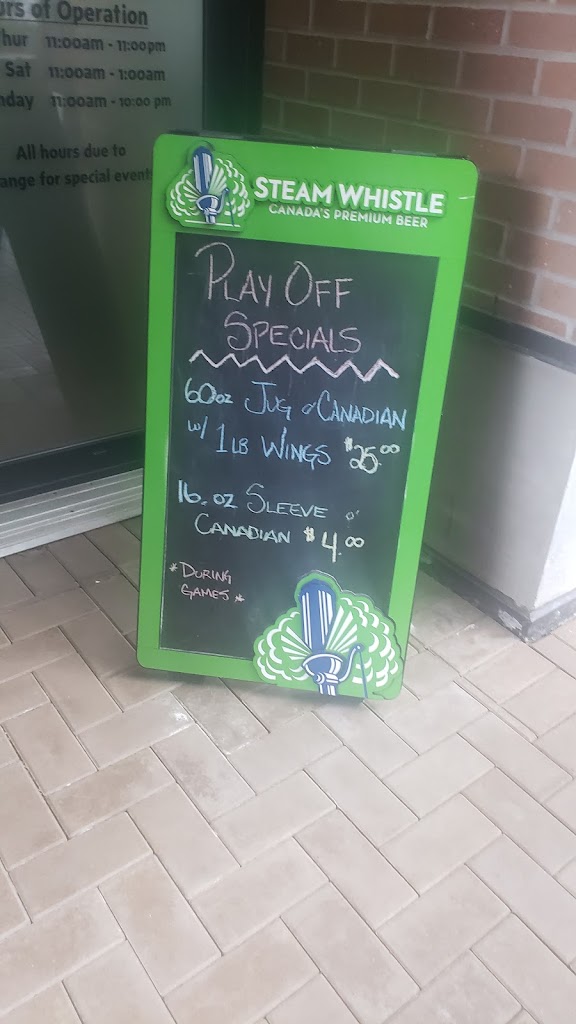 of Operation
11:00am - 11:00pm
Sat 11:00am - 1:00am
11:00am - 10:00 pm
All hours due to
for special events
STEAM WHISTLE
CANADA'S PREMIUM BEER
PLAY OFF
SPECIALS
60oz JUG o' CANADIAN
w/ 1LB WINGS $25.00
16.oz SLEEVE o'
CANADIAN $4.00
*DURING
GAMES*